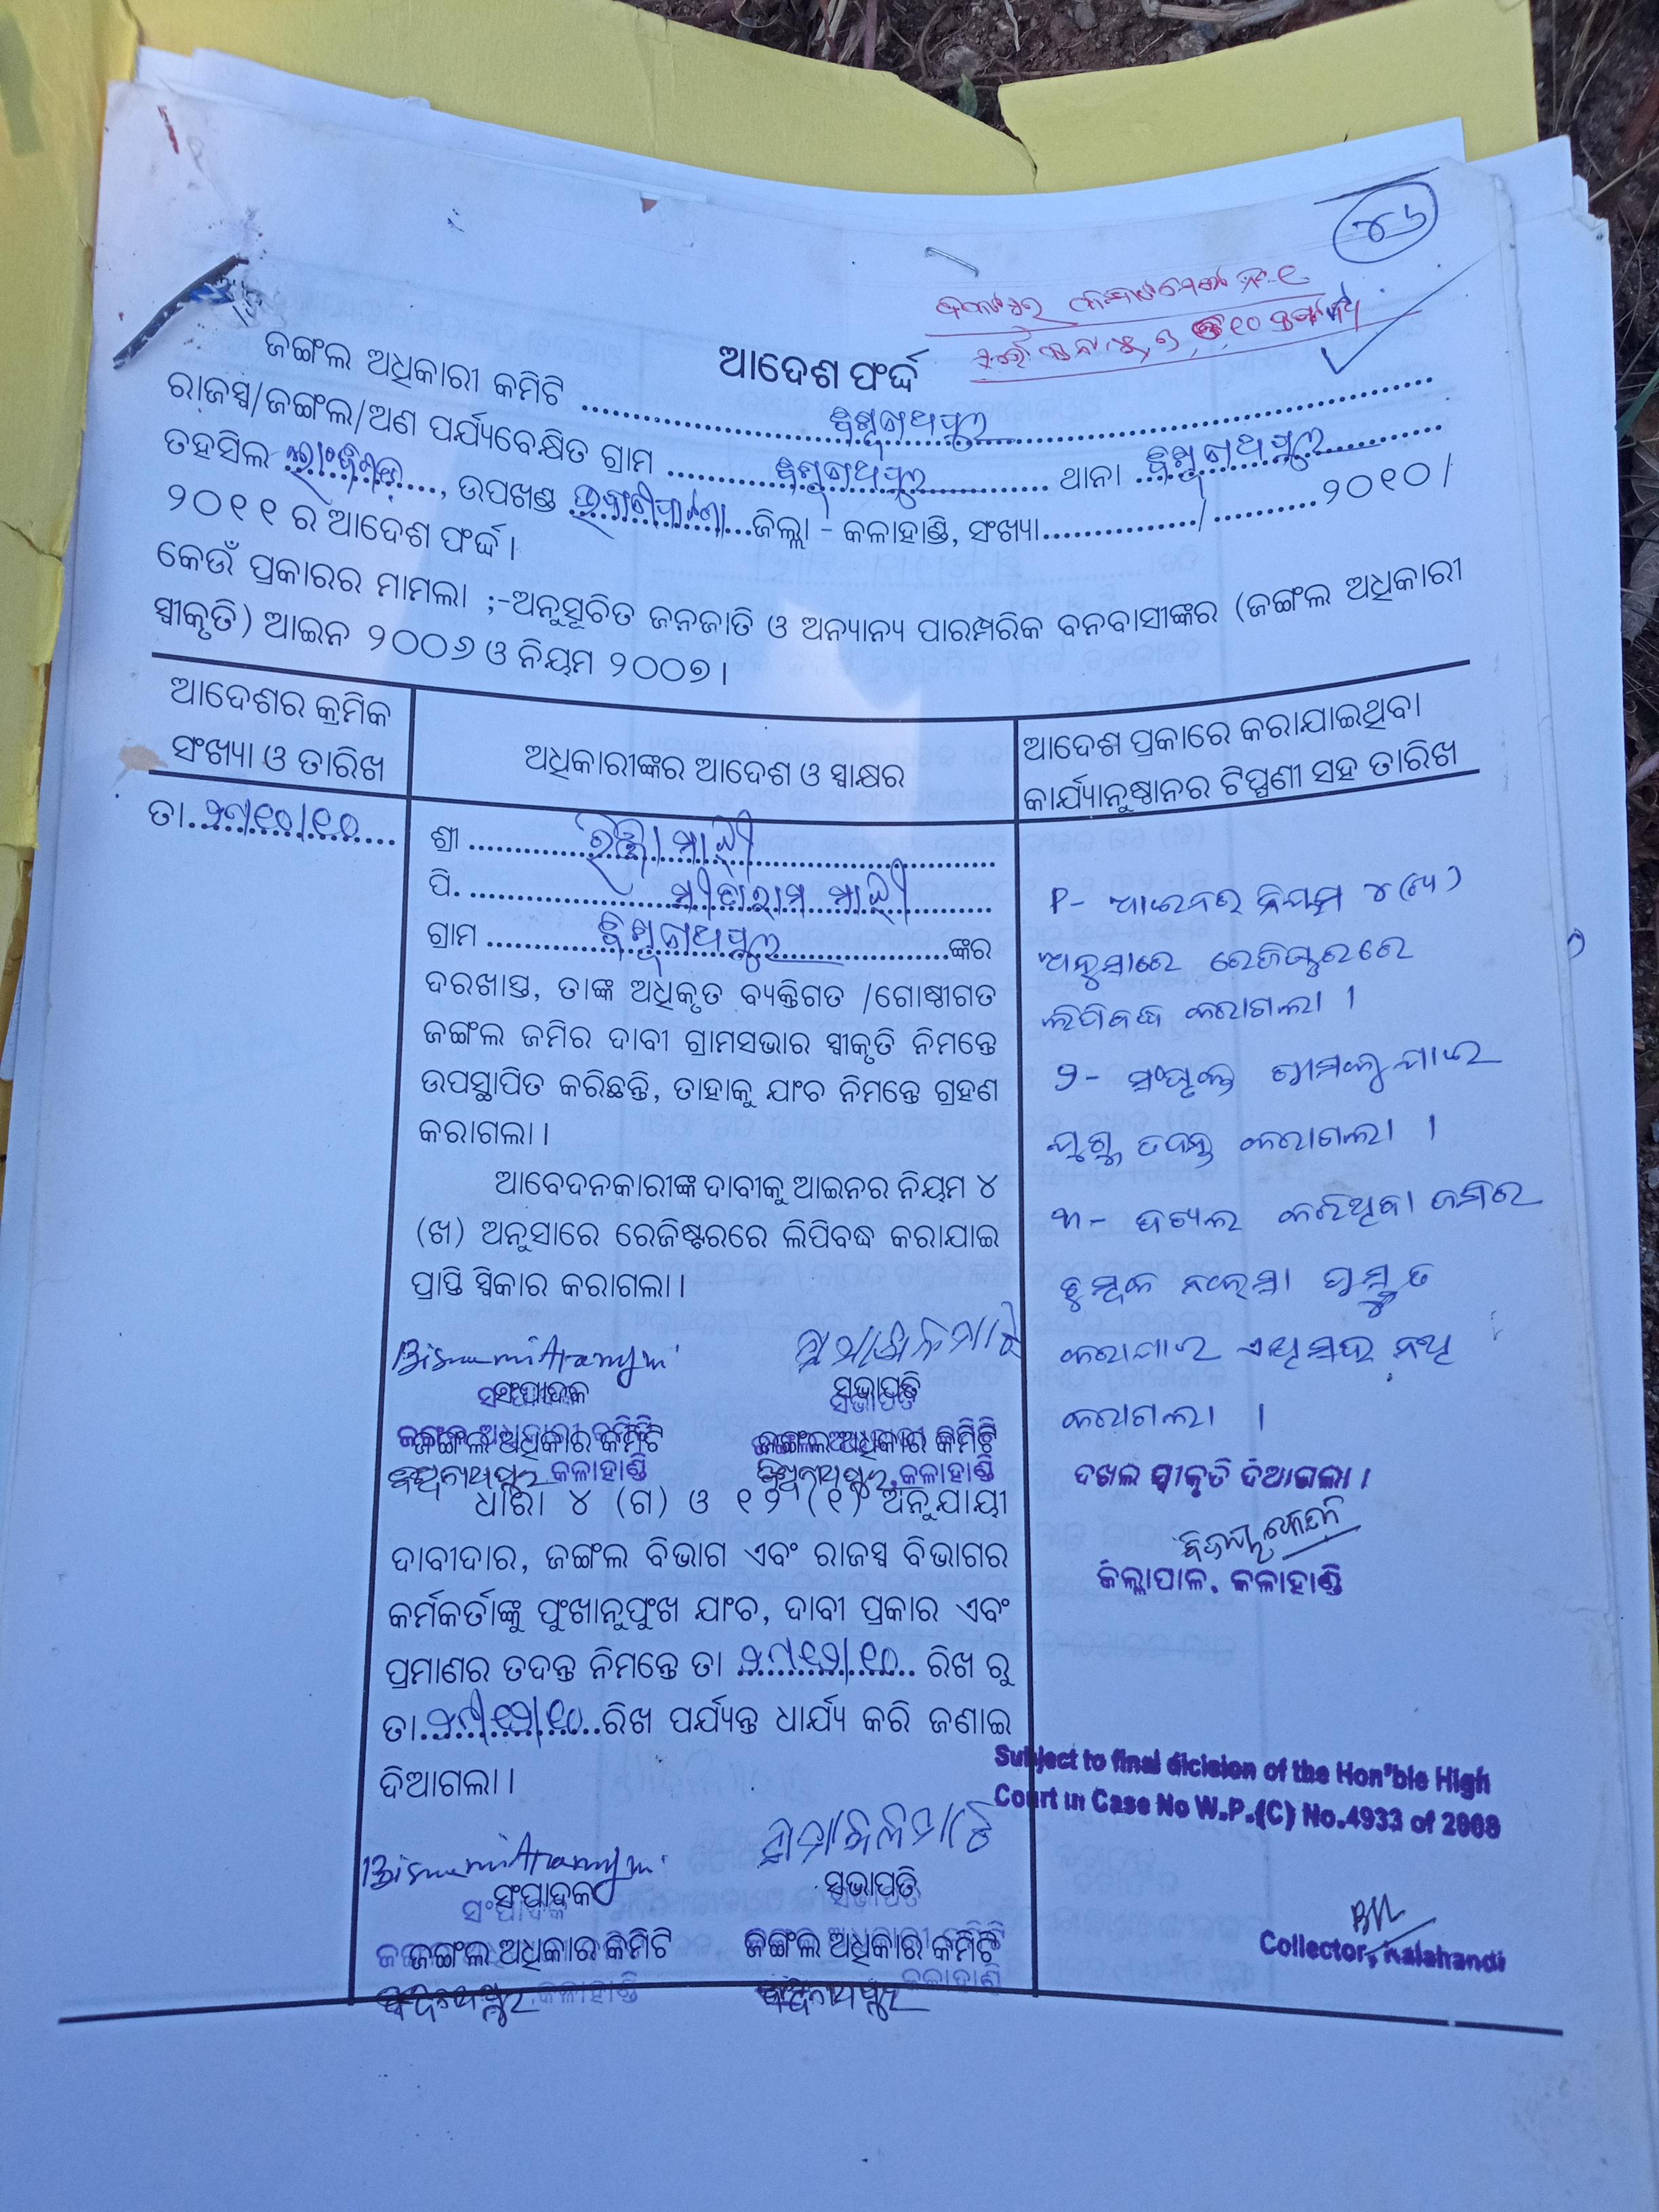 ୪୬
ଆଦେଶ ଫର୍ଦ୍ଦ
ଜଙ୍ଗଲ ଅଧିକାରୀ କମିଟି ........ ବିଶ୍ୱନାଥପୁର ........
ରାଜସ୍ୱ/ଜଙ୍ଗଲ/ଅଣ ପର୍ଯ୍ୟବେକ୍ଷିତ ଗ୍ରାମ ........ ବିଶ୍ୱନାଥପୁର ........ ଥାନା ........ ବିଶ୍ୱନାଥପୁର ........
ତହସିଲ ଲାଂଜିଗଡ଼, ଉପଖଣ୍ଡ ଭବାନୀପାଟଣା ଜିଲ୍ଲା - କଳାହାଣ୍ଡି, ସଂଖ୍ୟା............/..........୨୦୧୦/
୨୦୧୧ ର ଆଦେଶ ଫର୍ଦ୍ଦ।
କେଉଁ ପ୍ରକାରର ମାମଲା ;-ଅନୁସୂଚିତ ଜନଜାତି ଓ ଅନ୍ୟାନ୍ୟ ପାରମ୍ପରିକ ବନବାସୀଙ୍କର (ଜଙ୍ଗଲ ଅଧିକାରୀ
ସ୍ୱୀକୃତି) ଆଇନ ୨୦୦୬ ଓ ନିୟମ ୨୦୦୭।
ଆଦେଶର କ୍ରମିକ
ସଂଖ୍ୟା ଓ ତାରିଖ
ଅଧିକାରୀଙ୍କର ଆଦେଶ ଓ ସ୍ୱାକ୍ଷର
ଆଦେଶ ପ୍ରକାରେ କରାଯାଇଥିବା
କାର୍ଯ୍ୟାନୁଷ୍ଠାନର ଟିପ୍ପଣୀ ସହ ତାରିଖ
ତା.
ଶ୍ରୀ ........ ମାଝୀ
ପି. ........ ସୀତାରାମ ମାଝୀ
ଗ୍ରାମ ........ ବିଶ୍ୱନାଥପୁର ........ଙ୍କର
ଦରଖାସ୍ତ, ତାଙ୍କ ଅଧିକୃତ ବ୍ୟକ୍ତିଗତ /ଗୋଷ୍ଠୀଗତ
ଜଙ୍ଗଲ ଜମିର ଦାବୀ ଗ୍ରାମସଭାର ସ୍ୱୀକୃତି ନିମନ୍ତେ
ଉପସ୍ଥାପିତ କରିଛନ୍ତି, ତାହାକୁ ଯାଂଚ ନିମନ୍ତେ ଗ୍ରହଣ
କରାଗଲା।
ଆବେଦନକାରୀଙ୍କ ଦାବୀକୁ ଆଇନର ନିୟମ ୪
(ଖ) ଅନୁସାରେ ରେଜିଷ୍ଟରରେ ଲିପିବଦ୍ଧ କରାଯାଇ
ପ୍ରାପ୍ତି ସ୍ୱିକାର କରାଗଲା।
ସଂପାଦକ
ସଭାପତି
ଜଙ୍ଗଲ ଅଧିକାର କମିଟି
ଜଙ୍ଗଲ ଅଧିକାର କମିଟି
ବିଶ୍ୱନାଥପୁର, କଳାହାଣ୍ଡି
ବିଶ୍ୱନାଥପୁର, କଳାହାଣ୍ଡି
ଧାରା ୪ (ଗ) ଓ ୧୨ (୧) ଅନୁଯାୟୀ
ଦାବୀଦାର, ଜଙ୍ଗଲ ବିଭାଗ ଏବଂ ରାଜସ୍ୱ ବିଭାଗର
କର୍ମକର୍ତାଙ୍କୁ ପୁଂଖାନୁପୁଂଖ ଯାଂଚ, ଦାବୀ ପ୍ରକାର ଏବଂ
ପ୍ରମାଣର ତଦନ୍ତ ନିମନ୍ତେ ତା ........ ରିଖ ରୁ
ତା........ରିଖ ପର୍ଯ୍ୟନ୍ତ ଧାର୍ଯ୍ୟ କରି ଜଣାଇ
ଦିଆଗଲା।
ସଂପାଦକ
ସଭାପତି
ଜଙ୍ଗଲ ଅଧିକାର କମିଟି
ଜଙ୍ଗଲ ଅଧିକାର କମିଟି
ବିଶ୍ୱନାଥପୁର, କଳାହାଣ୍ଡି
ବିଶ୍ୱନାଥପୁର କଳାହାଣ୍ଡି
୧- ଆଇନର ନିୟମ ୪(ଖ)
ଅନୁସାରେ ରେଜିଷ୍ଟରରେ
ଲିପିବଦ୍ଧ କରାଗଲା ।
୨- ସଂପୃକ୍ତ ଗ୍ରାମକୁ ଯାଇ
ଯୁଗ୍ମ ତଦନ୍ତ କରାଗଲା ।
୩- ଦଖଲ କରିଥିବା ଜମିର
ଟ୍ରେସ୍ ନକ୍ସା ପ୍ରସ୍ତୁତ
କରାଯାଇ ଏଥିସହ ନଥି
କରାଗଲା ।
ଦଖଲ ସ୍ୱୀକୃତି ଦିଆଗଲା।
ଜିଲ୍ଲାପାଳ, କଳାହାଣ୍ଡି
Subject to final dicision of the Hon'ble High
Court in Case No W.P.(C) No.4933 of 2008
Collector, Kalahandi